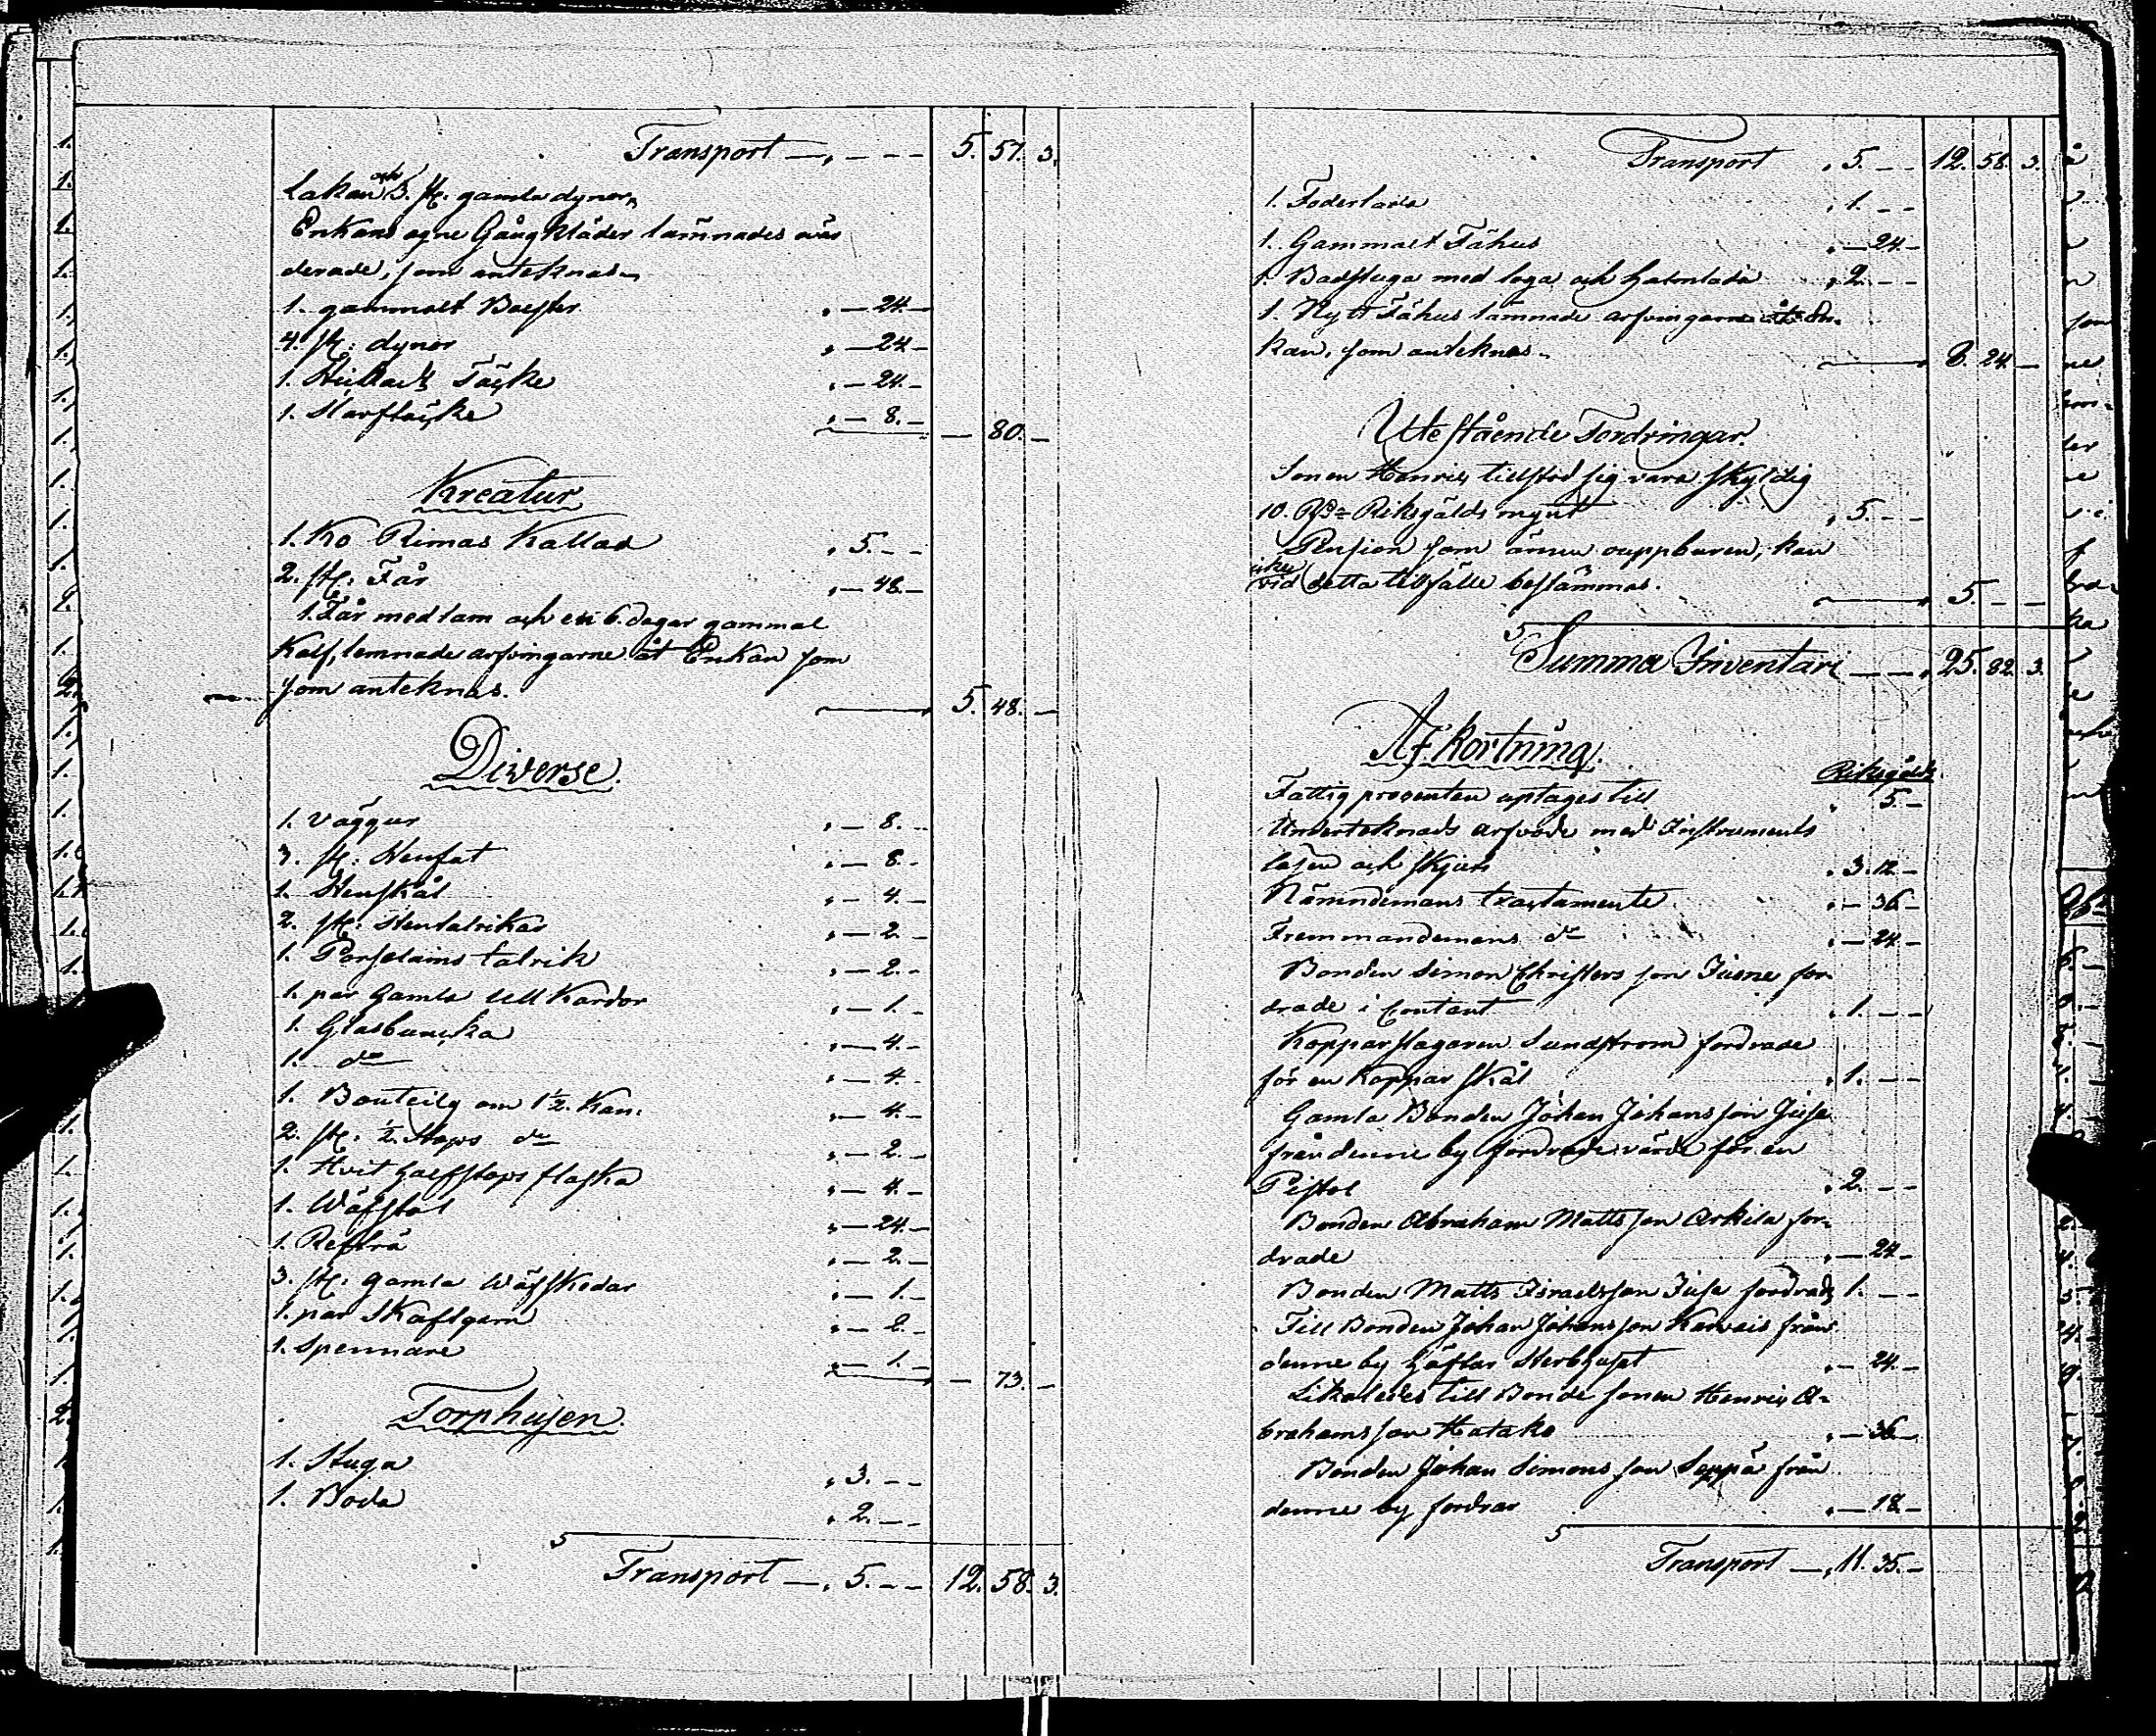 Transport — „ — — — 5. 57. 3.
Lakan och 3. st: gamla dynor,
Enkans egne Gångkläder lämnades ovär
derade, som anteknas.
1. gammalt Bolster „ — 24. —
4. st: dynor „ — 24 —
1. Täcke „ — 24. —
1. „ — 8. — — 80. —
Kreatur
1. Ko Rimas Kallad „ 5. — —
2. st: Får „ — 48. —
1. Får med lam och en 6. dagar gammal
Kalf, lemnade arfvingarne åt Enkan som
som anteknas. 5. 48. —
Diverse.
1. vaggur „ — 8. —
3. st: Stenfat „ — 8. —
1. Stenskål „ — 4. —
2. st: Stentalrikar „ — 2. —
1. Porselains talrik „ — 2. —
1. par gamla Ull Kardor „ — 1. —
1. Glasbuncka „ — 4. —
1. do „ — 4. —
1. Bouteilg om 1½. Kan: „ — 4. —
2. st: ½. Stops do „ — 2. —
1. Hvit halfstops flaska „ — 4. —
1. Wäfstol „ — 24. —
1. Refträ „ — 2. —
3. st: gamla Wäfskedar „ — 1. —
1. par Skaftgarn „ — 2. —
1. Spennare „ — 1. — — 73. —
Torphusen.
1. Stuga „ 3. — —
1. Boda „ 2. — —
Transport — „ 5. — — 12. 58. 3.
Transport „ 5. — — 12. 58. 3.
1. Foderlada „ 1. — —
1. Gammalt Fähus „ — 24. —
1. Badstuga med loga och halmlada „ 2. — —
1. Nytt Fähus lämnade arfvingarne åt En-
kan, som anteknas. 8. 24. —
Utestående Fordringar.
Sonen Henric tillstod sig vara skyldig
10. Rd: Riksgälds mynt „ 5. — —
Pension som ännu ouppburen, kan
icke vid detta tillfälle bestämmas. 5. — —
Summa Inventarii — — „ 25. 82. 3.
Afkortning.
Riksgälds
Fattig procenten uptages till „ 5 —
Underteknads arfvode med Instruments
lösen och skjuts „ 3. 12 —
Nämndemans tractamente „ — 36 —
Fremmandemans do „ — 24 —
Bonden Simon Christers son for-
drade i Contant „ 1. — —
Kopparslagaren Sundstrom fordrade
för en Koppar skål „ 1. — —
Gamla Bonden Johan Johansson Juse
från denne by fordrade värde för en
Pistol „ 2. — —
Bonden Abraham Matts son Arkila for-
drade „ — 24 —
Bonden Matts Israelsson Juse fordrade 1. — —
Till Bonden Johan Johansson från
denne by häftar Sterbhuset „ — 24. —
Likaledes till Bonde sonen Henric A-
brahams son Hatako „ — 36. —
Bonden Johan Simons son Seppä från
denne by fordrar „ — 18. —
Transport — „ 11. 35. —